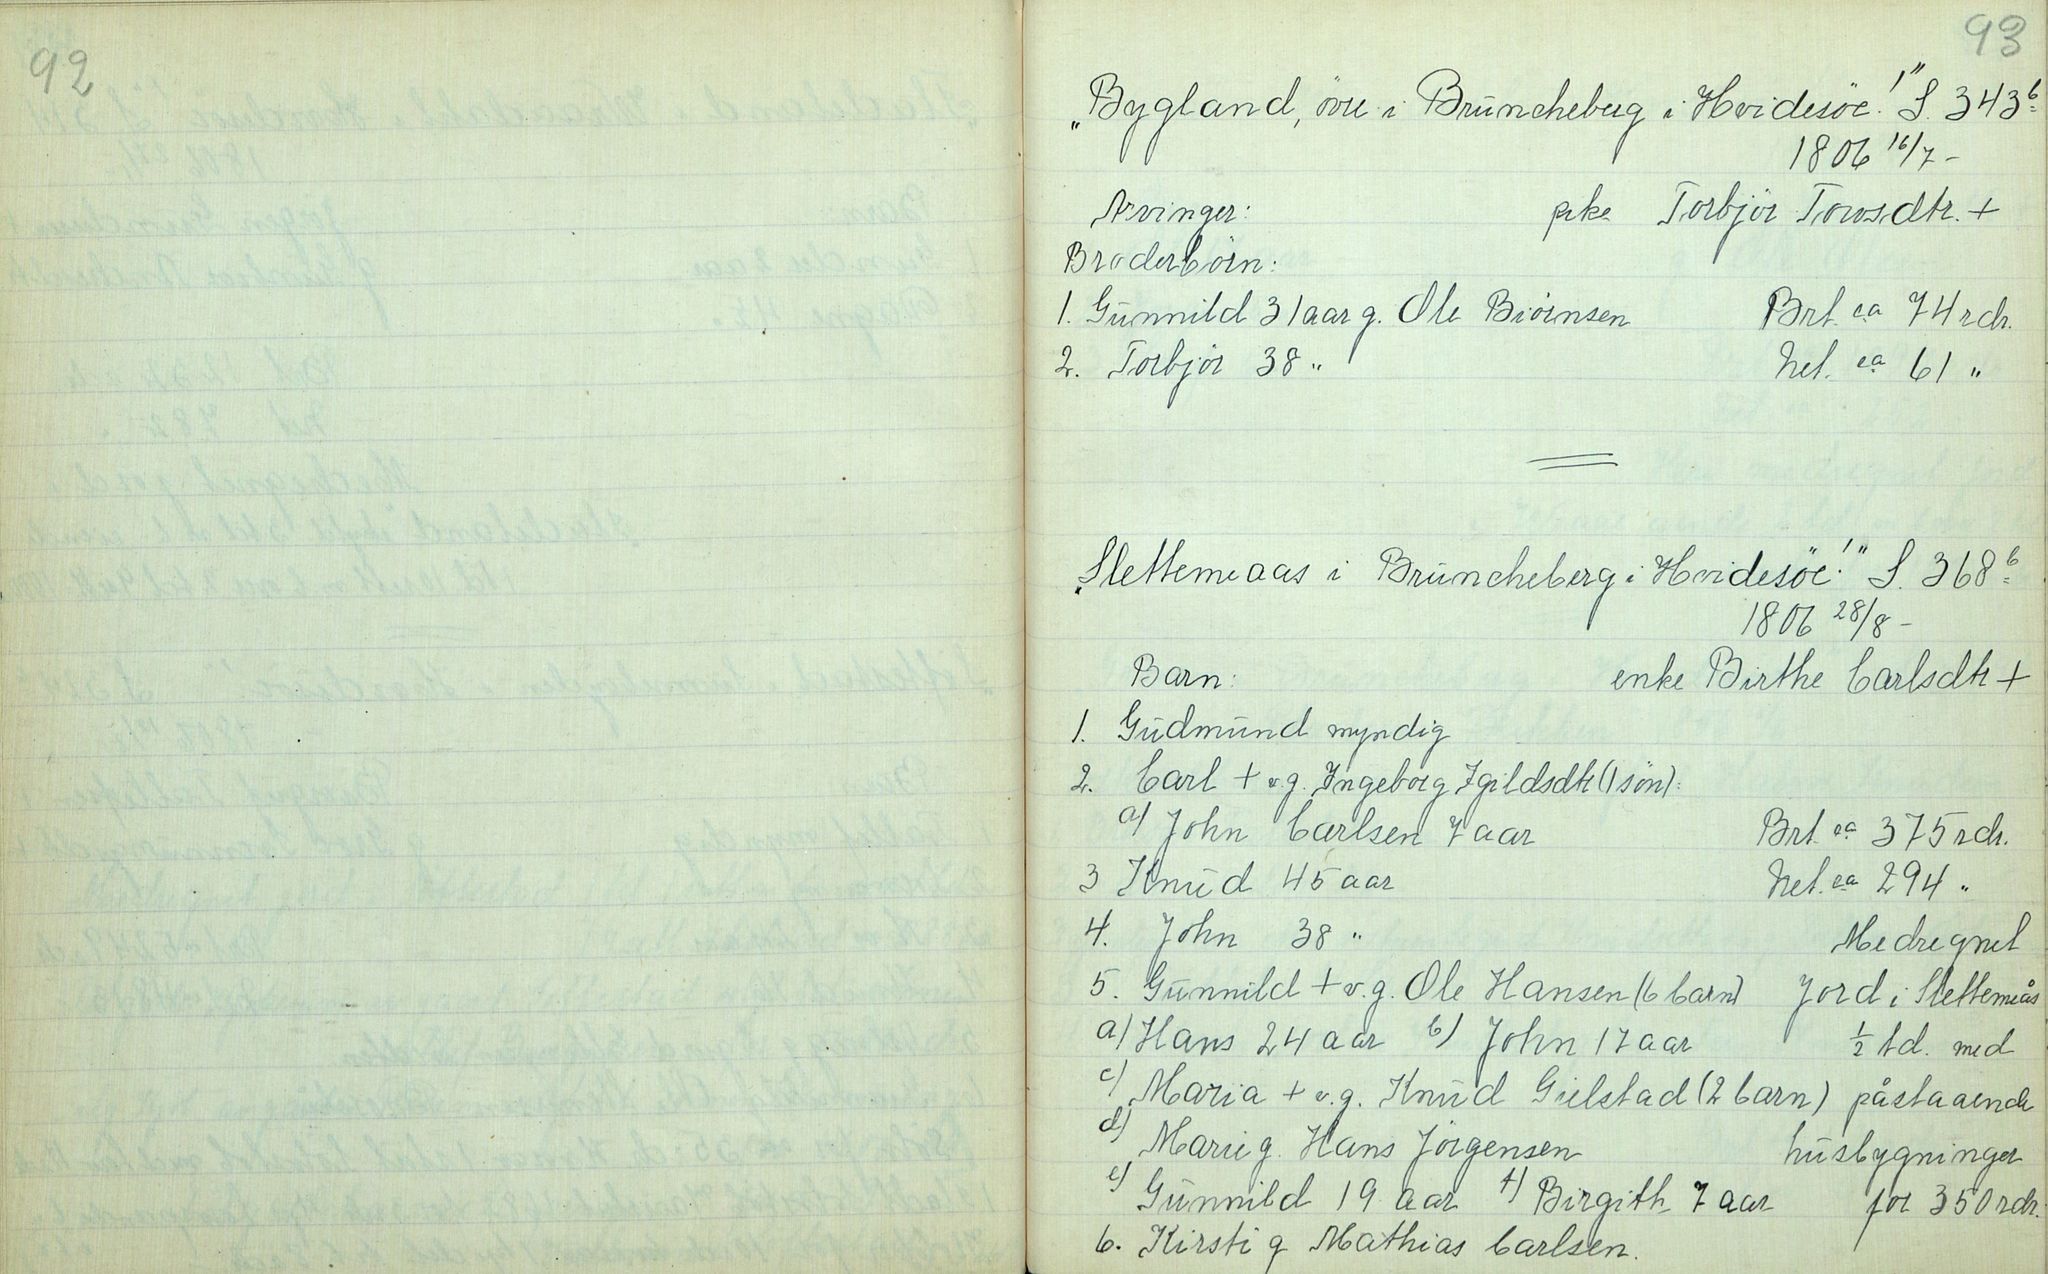 92
93
"Bygland, övre i Brüncheberg i Hvidesöe!" S. 343 b
1806 16/7 -
Arvinger: pike Torbjör Tovsdtr. +
Broderbörn:
1. Günnild 31 aar g. Ole Biörnsen Brt. ca 74 rdr.
2. Torbjör 38 " Net. ca 61 "
"Slettemeaas i Brüncheberg i Hvidesöe!" S. 368 b
1806 28/8 -
Barn: enke Birthe Carlsdtr +
1. Güdmünd myndig
2. Carl + v.g. Ingeborg Igildsdtr (1 sön):
a) John Carlsen 7 aar Brt. ca 375 rdr.
3 Knüd 45 aar Net. ca 294 "
4. John 38 " Medregnet
5. Günnild + v.g. Ole Hansen (6 barn) Jord i Slettemeås
a) Hans 24 aar b) John 17 aar 1/2 td. med
c) Maria + v.g. Knüd Gielstad (2 barn) påstaaende
d) Marie g. Hans Jörgensen hüsbygninger
e) Günnild 19 aar f) Birgith 7 aar for 350 rdr.
6. Kirsti g Mathias Carlsen.